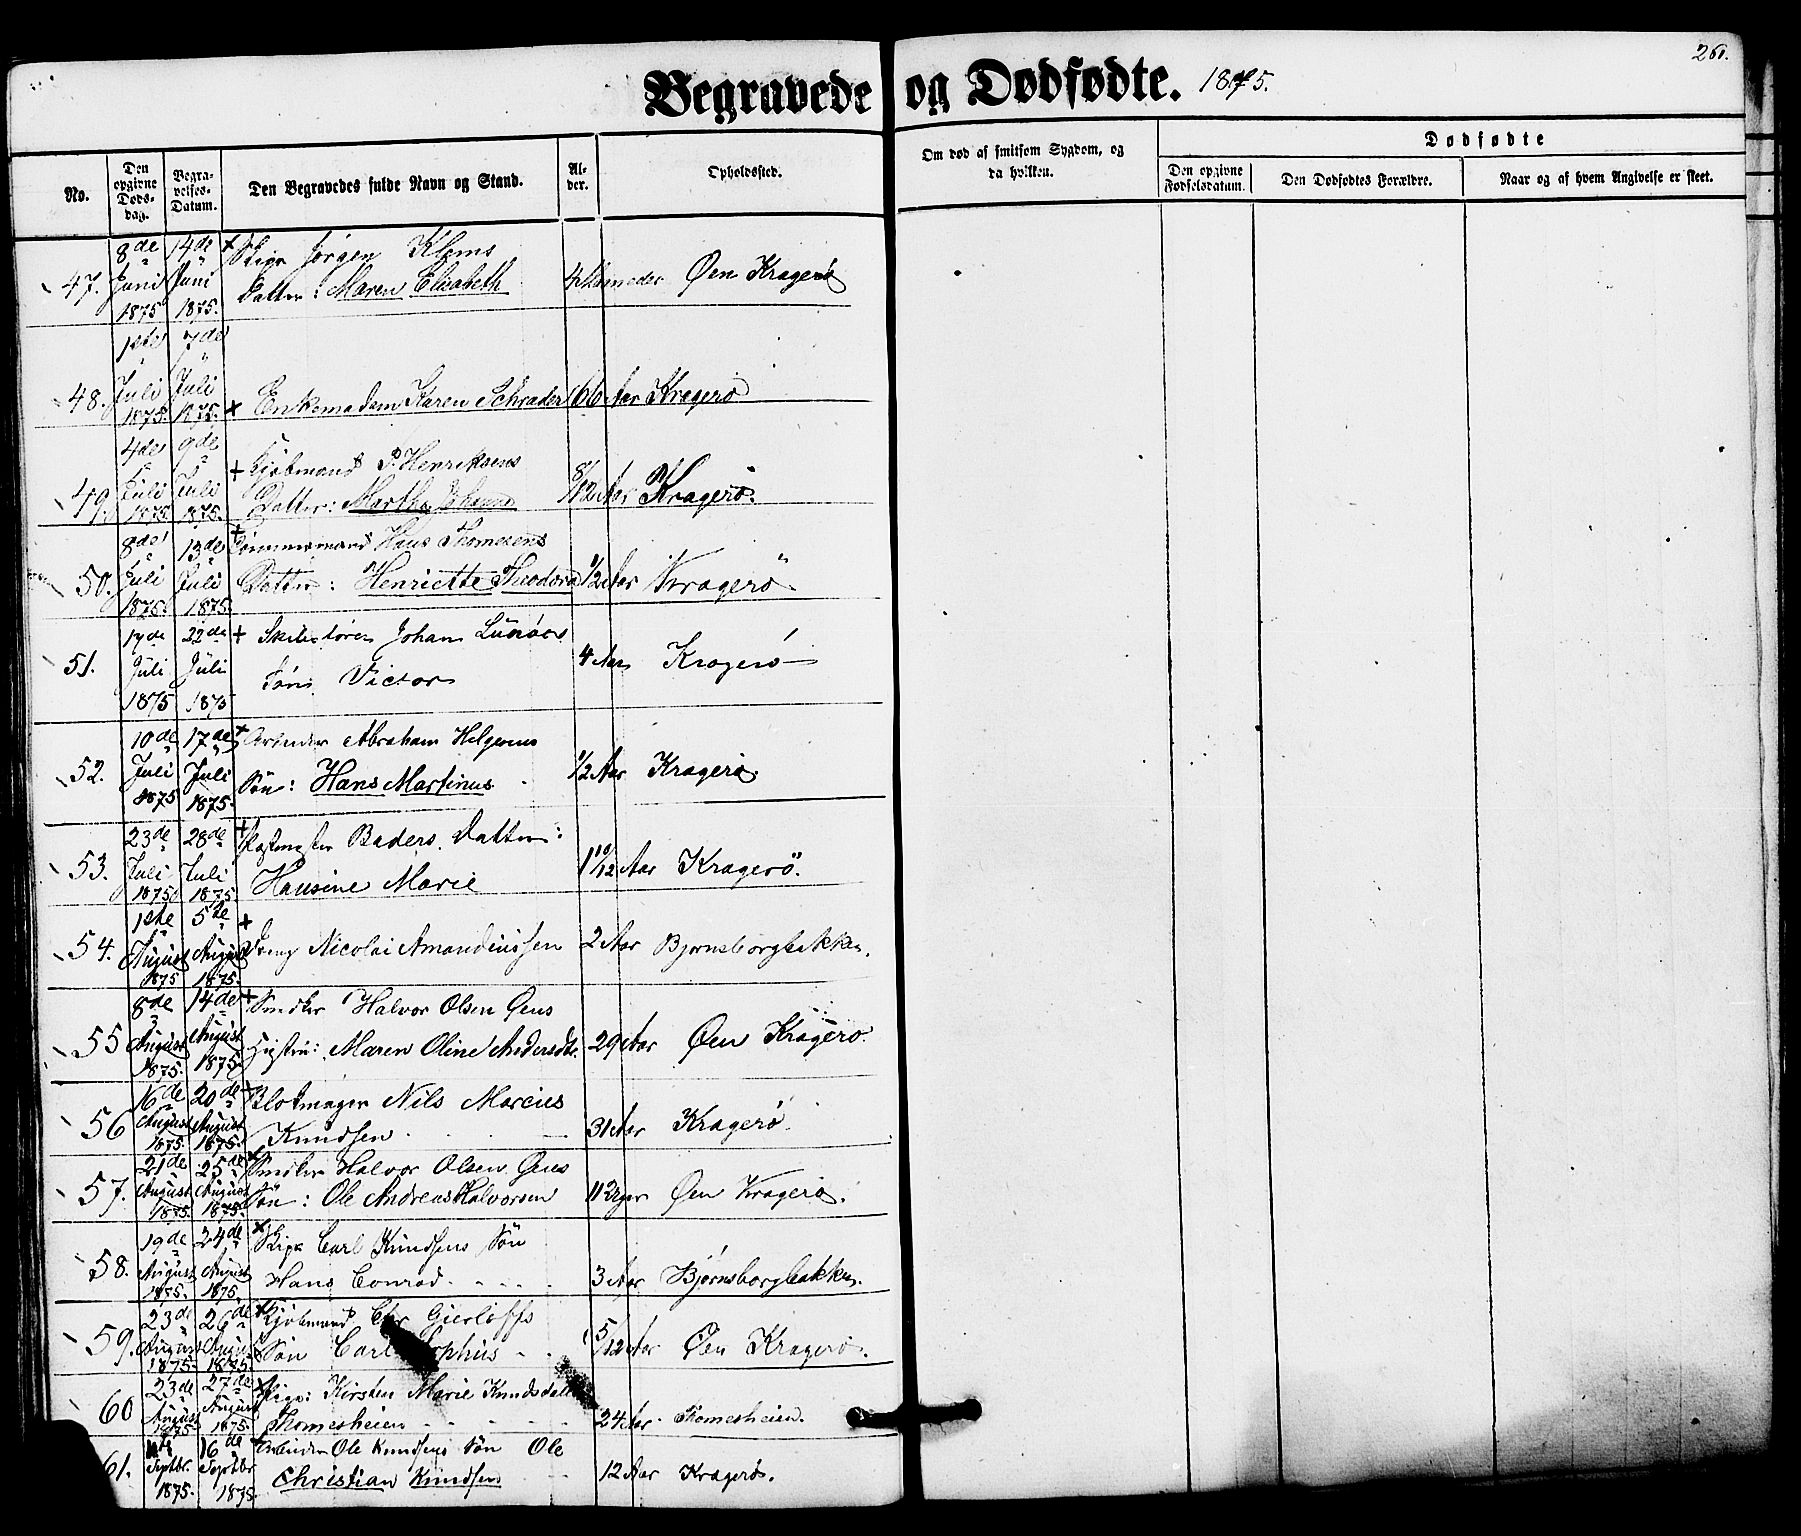 Begravede og Dødfødte. 1875.
260.
No.
Den opgivne Døds-dag.
Begra-velses-Datum.
Den Begravedes fulde Navn og Stand.
Al-der.
Opholdssted.
Om død af smitsom Sygdom, og da hvilken.
Dødfødte
Den opgivne Fødselsdatum.
Den Dødfødtes Forældre.
Naar og af hvem Angivelse er skeet.
47. 8de Juni 1875 14de Juni 1875. + Jörgen
Datter: Maren Elisabeth Øen Kragerø
48. 1ste Juli 1875. 7de Juli 1875. + Enkemadam Karen Schrader 66 Aar Kragerø
49. 4de Juli 1875. 9de Juli 1875. + Kjøbmand P. Henriksens
Datter: Martha 8/12 Aar Kragerø.
50. 8de Juli 1875. 13de Juli 1875. + Tømmermand Hans Thomesens
Datter: Henriette Theodora 1/2 Aar Kragerö.
51. 17de Juli 1875 22de Juli 1875 + Johan
Søn Victor 4 Aar Kragerö
52. 10de Juli 1875 17de Juli 1875. + Arbeider Abraham Helgesens
Søn: Hans Martinus. 1/2 Aar Kragerø.
53. 23de Juli 1875 28de Juli 1875. + Postmester Baders Datter:
Hansine Marie 1 10/12 Aar Kragerö.
54. 1ste August 1875 5te August 1875. + Dreng Nicolai Amandeussen 2 Aar Bjørnsborgbakken.
55 8de August 1875. 14de August 1875. + Snedker Halvor Olsen Øens
Hustru: Maren Oline Andersdtr. 29 Aar Øen Kragerø.
56 16de August 1875. 20de August 1875. + Nils Marcus
Knudsen 31 Aar Kragerö.
57. 21de August 1875. 25de August 1875. + Snedker Halvor Olsen Øens
Søn: Ole Andreas Halvorsen Øen Kragerø.
58. 19de August 1875. 24de August 1875. + Carl Knudsens Søn
Hans Conrad 3 Aar Bjørnsborgbakken.
59. 23de August 1875. 26de August 1875. + Kjøbmand Chr Gierløffs
Søn Carl 5/12 Aar Øen Kragerø.
60 23de August 1875 27de August 1875. + Pige: Kirsten Marie Knudsdatter
Thomesheien 24 Aar. Thomesheien.
61. Septbr. 1875. 16de Septbr 1875. + Arbeider Ole Knudsens Søn Ole
Christian Knudsen 12 Aar Kragerø.